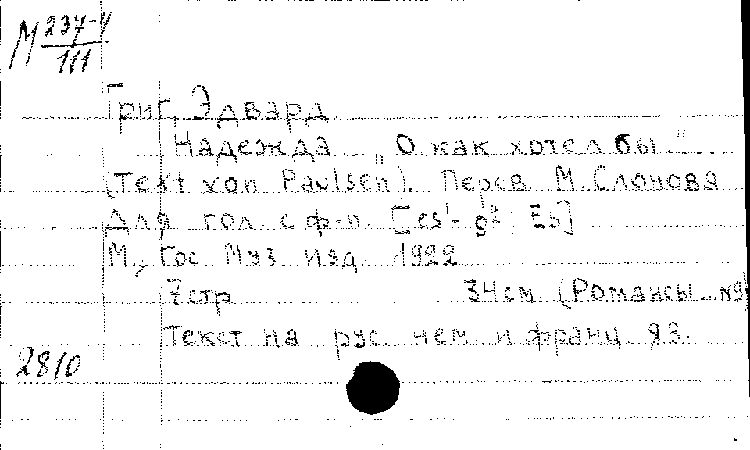 М 237-4
111
Григ, Эдвард.
Надежда „О как хотел бы."
(Text хоп Paulsen). Перев М. Слонова
Для гол. с ф-п. [es¹-g² ; Es]
М., Гос. Муз. изд. 1922
7 стр 34 см (Романсы. №9)
Текст на рус. нем и франц яз.
2810